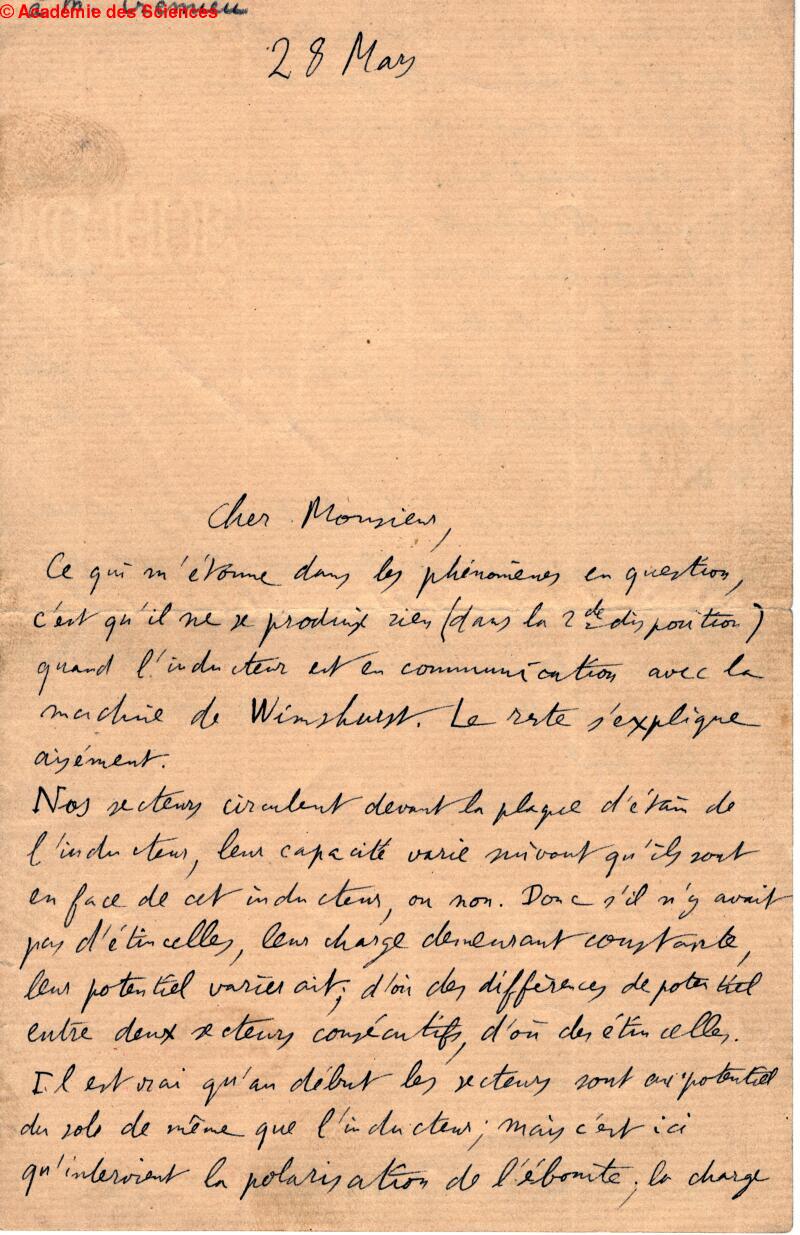 © Académie des Sciences
à M. Crémieu
28 Mars
Cher Monsieur,
Ce qui m'étonne dans les phénomènes en question,
c'est qu'il ne se produix rien (dans la 2de disposition)
quand l'inducteur est en communication avec la
machine de Wimshurst. Le reste s'explique
aisément.
Nos secteurs circulent devant la plaque d'étain de
l'inducteur, leur capacité varie suivant qu'ils sont
en face de cet inducteur, ou non. Donc s'il n'y avait
pas d'étincelles, leur charge demeurant constante,
leur potentiel varierait; d'où des différences de potentiel
entre deux secteurs consécutifs, d'où des étincelles.
Il est vrai qu'au début les secteurs sont au potentiel
du sole de même que l'inducteur; mais c'est ici
qu'intervient la polarisation de l'ébonite; la charge